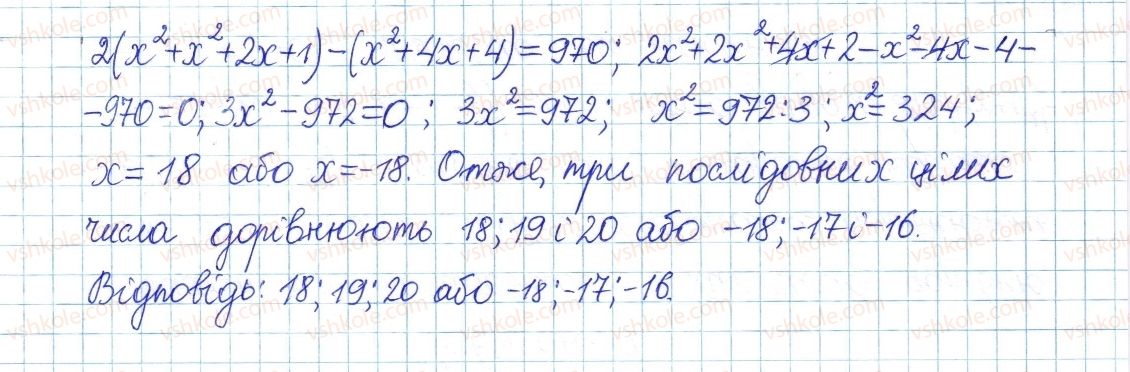 2(x²+x²+2x+1)-(x²+4x+4)=970; 2x²+2x²+4x+2-x²-4x-4-
-970=0; 3x²-972=0; 3x²=972; x²=972:3; x²=324;
x=18 або x=-18. Отже, три послідовних цілих
числа дорівнюють 18; 19 і 20 або -18; -17 і -16.
Відповідь: 18; 19; 20 або -18; -17; -16.